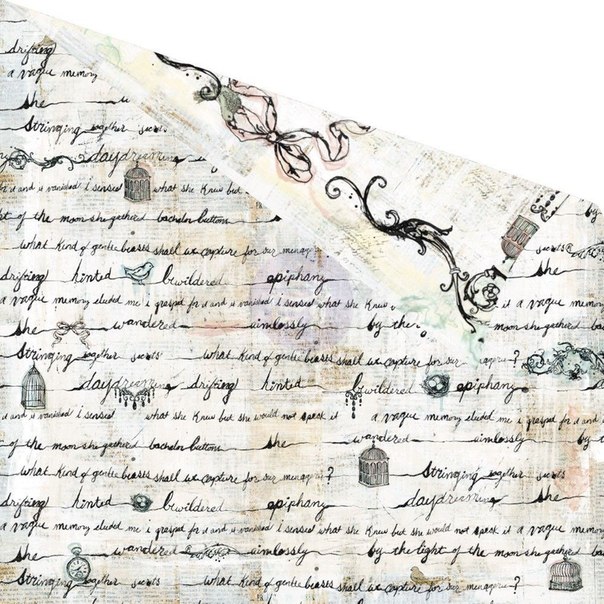 drifting
a vague memory
she
Stringing together secrets
daydreaming
it and it vanished i sensed what she knew but
light of the moon she gathered bachelor buttons
what kind of gentle beasts shall we capture for our menagerie
secrets
drifting hinted bewildered epiphany she
a vague memory eluded me i grasped for it and it vanished i sensed what she knew for it and it vanished i sensed
she wandered aimlessly by the of the moon she gathered bachelor buttons
Stringing together secrets what kind of gentle beasts shall we capture for our menagerie?
daydreaming drifting hinted bewildered epiphany
it and it vanished i sensed what she knew but she would not speak it a vague memory eluded me i grasped for it and it
of the moon she gathered bachelor buttons she wandered aimlessly by
what kind of gentle beasts shall we capture for our menagerie? Stringing together secrets
drifting hinted bewildered epiphany daydreaming she
a vague memory eluded me i grasped for it and it vanished i sensed what she knew but she would not speak it a vague memory
she wandered aimlessly by the light of the moon she gathered bachelor buttons
Stringing together secrets what kind of gentle beasts shall we capture for our menagerie?